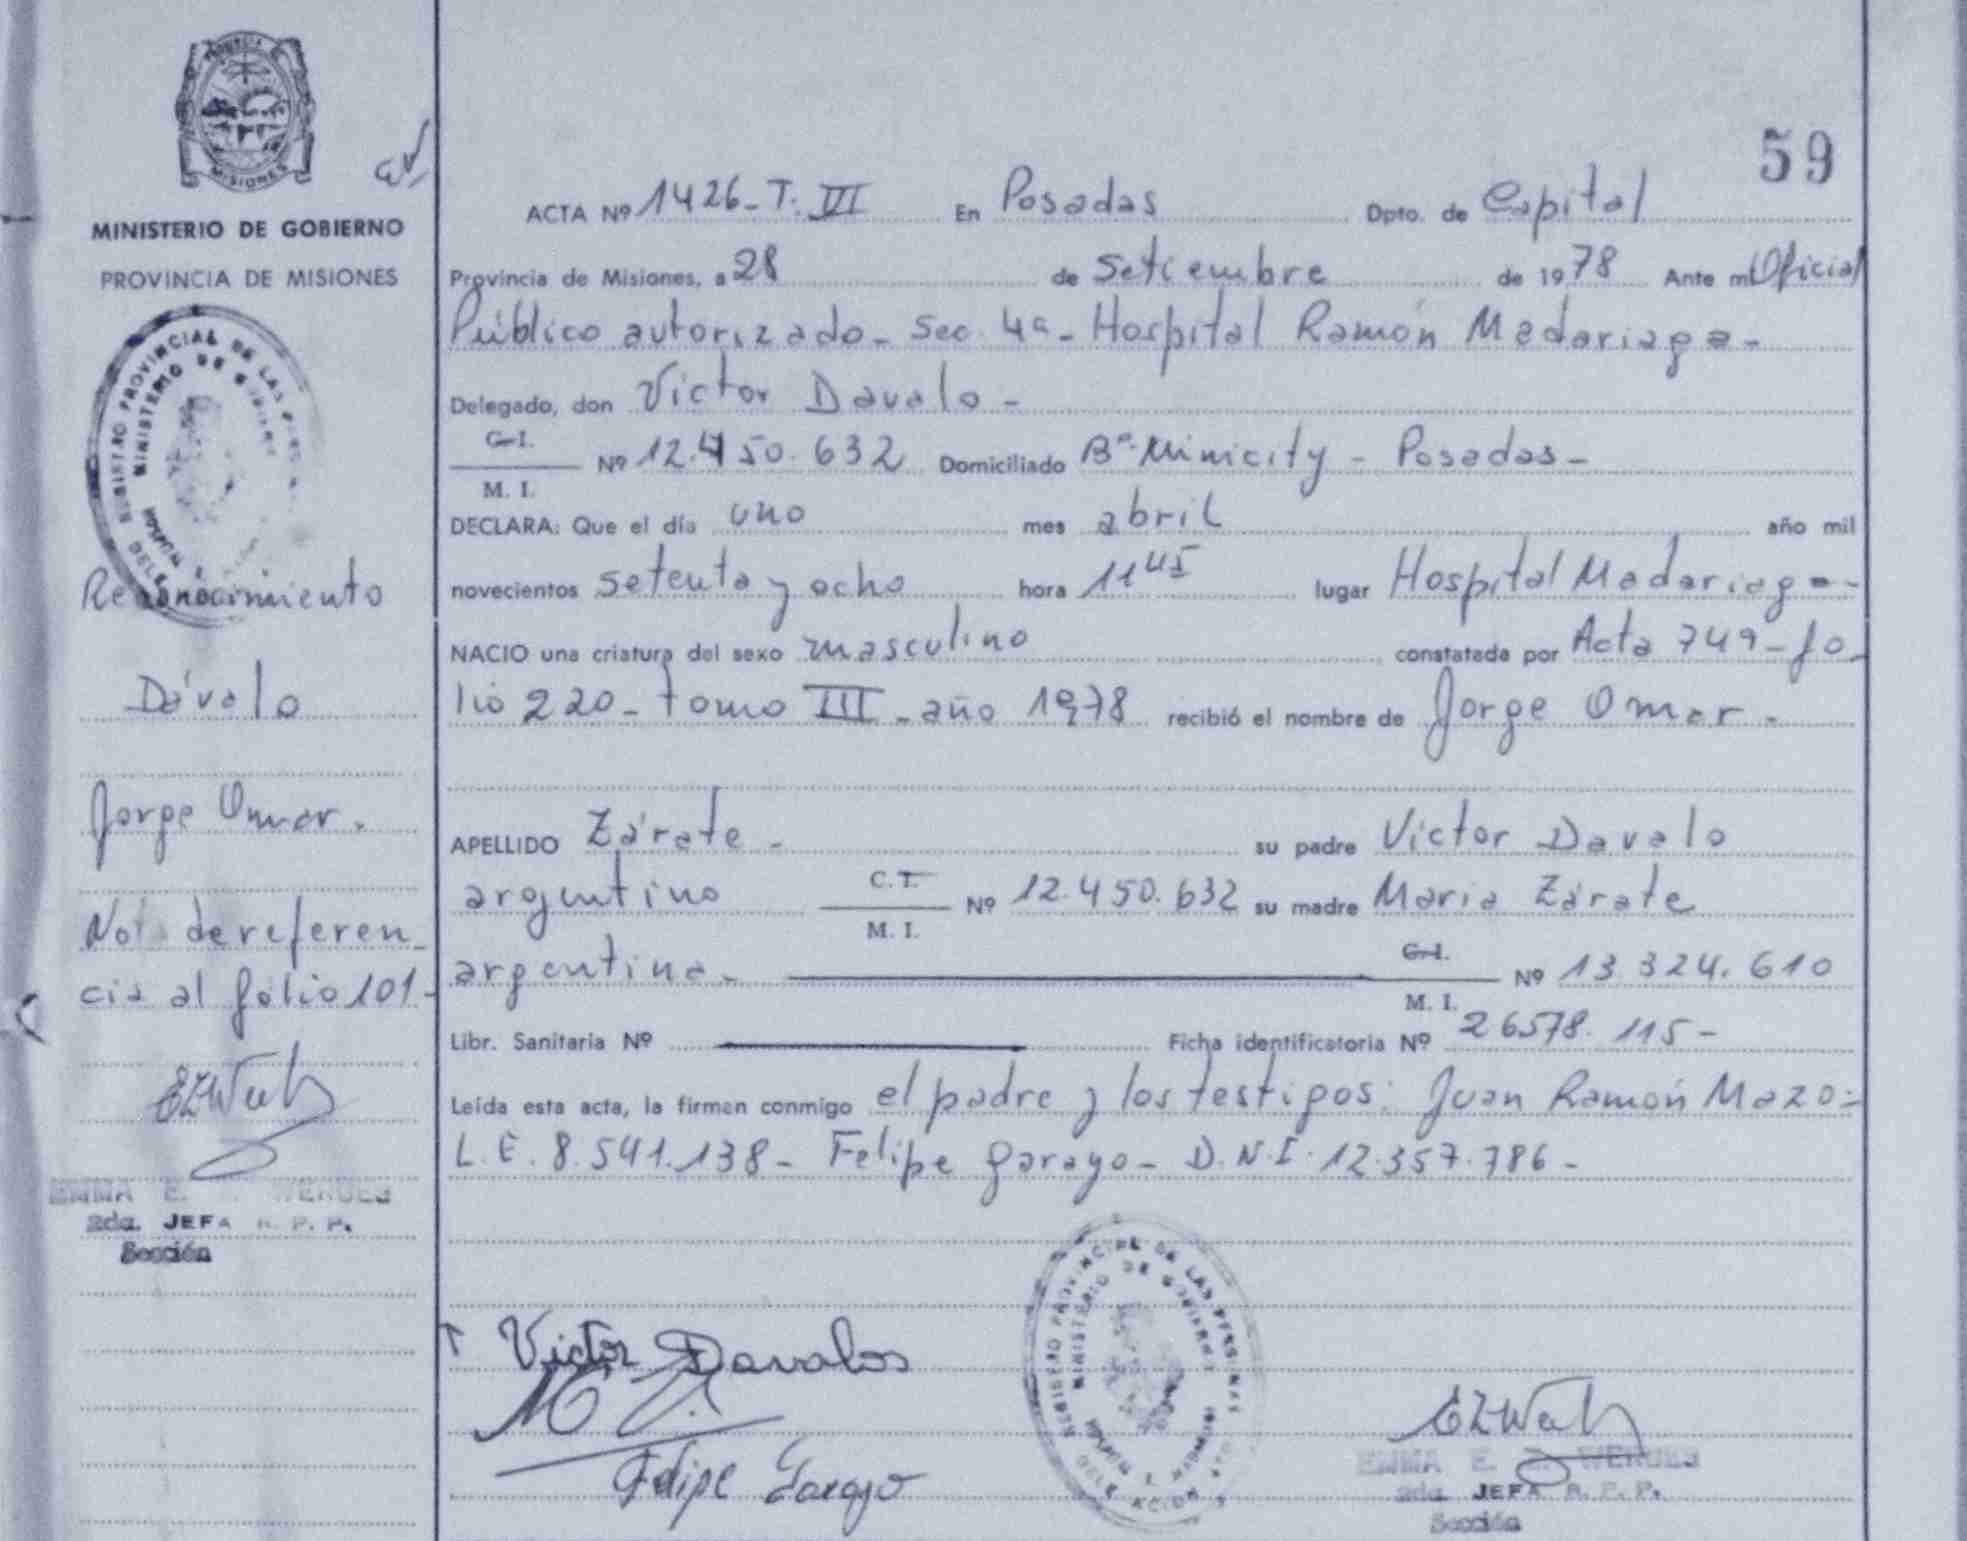 PROVINCIA DE
MISIONES
MINISTERIO DE GOBIERNO
PROVINCIA DE MISIONES
REGISTRO PROVINCIAL DE LAS
MINISTERIO DE
Reconocimiento
Dávalo
Jorge Omar.
Nota de referen-
cia al folio 101-
EMMA E. WERDES
2da. JEFA R. P. P.
Sección
59
ACTA Nº 1426-T. VI En Posadas Dpto. de Capital
Provincia de Misiones, a 28 de Setiembre de 1978 Ante mi Oficial
Público autorizado - Sec. 4ª - Hospital Ramón Madariaga -
Delegado, don Victor Davalo -
C. I.
Nº 12.450.632 Domiciliado Bº. Minicity - Posadas -
M. I.
DECLARA: Que el día uno mes abril año mil
novecientos setenta y ocho hora 11 45 lugar Hospital Madariaga -
NACIO una criatura del sexo masculino constatada por Acta 749 - fo-
lio 220 - tomo III - año 1978 recibió el nombre de Jorge Omar -
APELLIDO Zárate - su padre Victor Davalo
argentino C. I. Nº 12.450.632 su madre Maria Zárate
M. I.
argentina - C. I. Nº 13.324.610
M. I.
Libr. Sanitaria Nº Ficha identificatoria Nº 26578.115 -
Leída esta acta, la firman conmigo el padre y los testigos: Juan Ramón Mazo=
L.E. 8.541.138 - Felipe Garayo - D.N.I. 12.357.786 -
Victor Davalos
Felipe Garayo
REGISTRO PROVINCIAL DE LAS PERSONAS
MINISTERIO DE GOBIERNO
EMMA E. WERDES
2da. JEFA R. P. P.
Sección